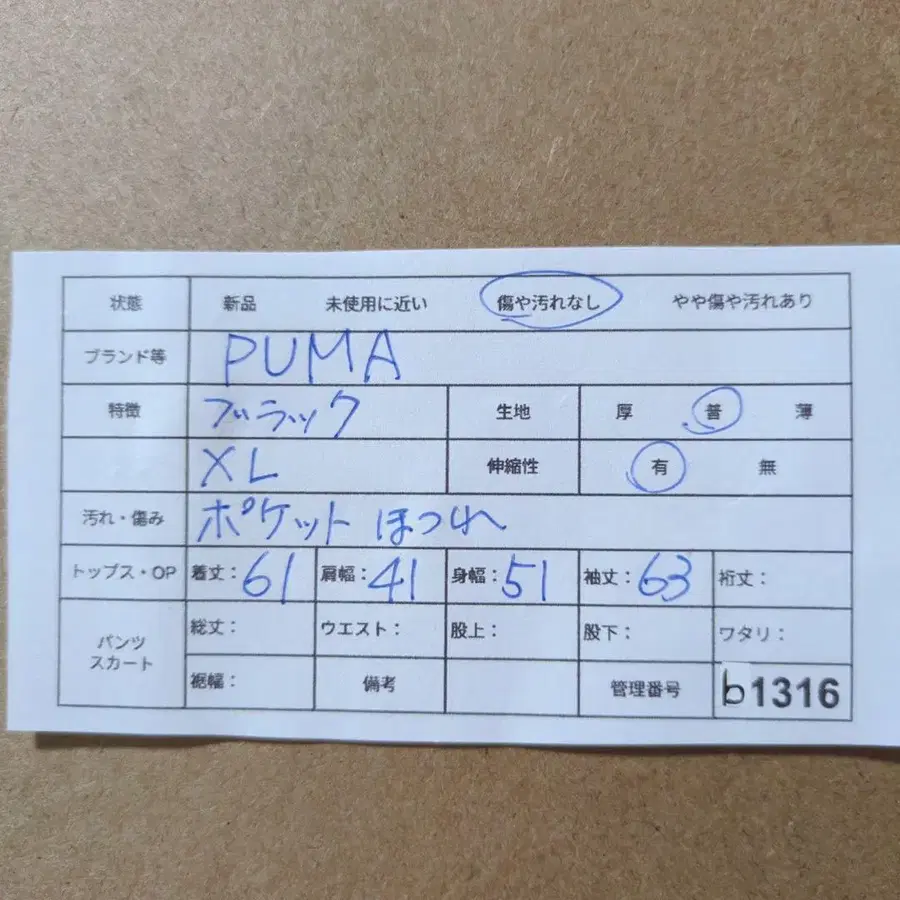 状態 新品 未使用に近い 傷や汚れなし やや傷や汚れあり
ブランド等 PUMA
特徴 ブラック 生地 厚 普 薄
XL 伸縮性 有 無
汚れ・傷み ポケット ほつれ
トップス・OP 着丈：61 肩幅：41 身幅：51 袖丈：63 裄丈：
パンツ スカート 総丈： ウエスト： 股上： 股下： ワタリ：
裾幅： 備考 管理番号 b1316